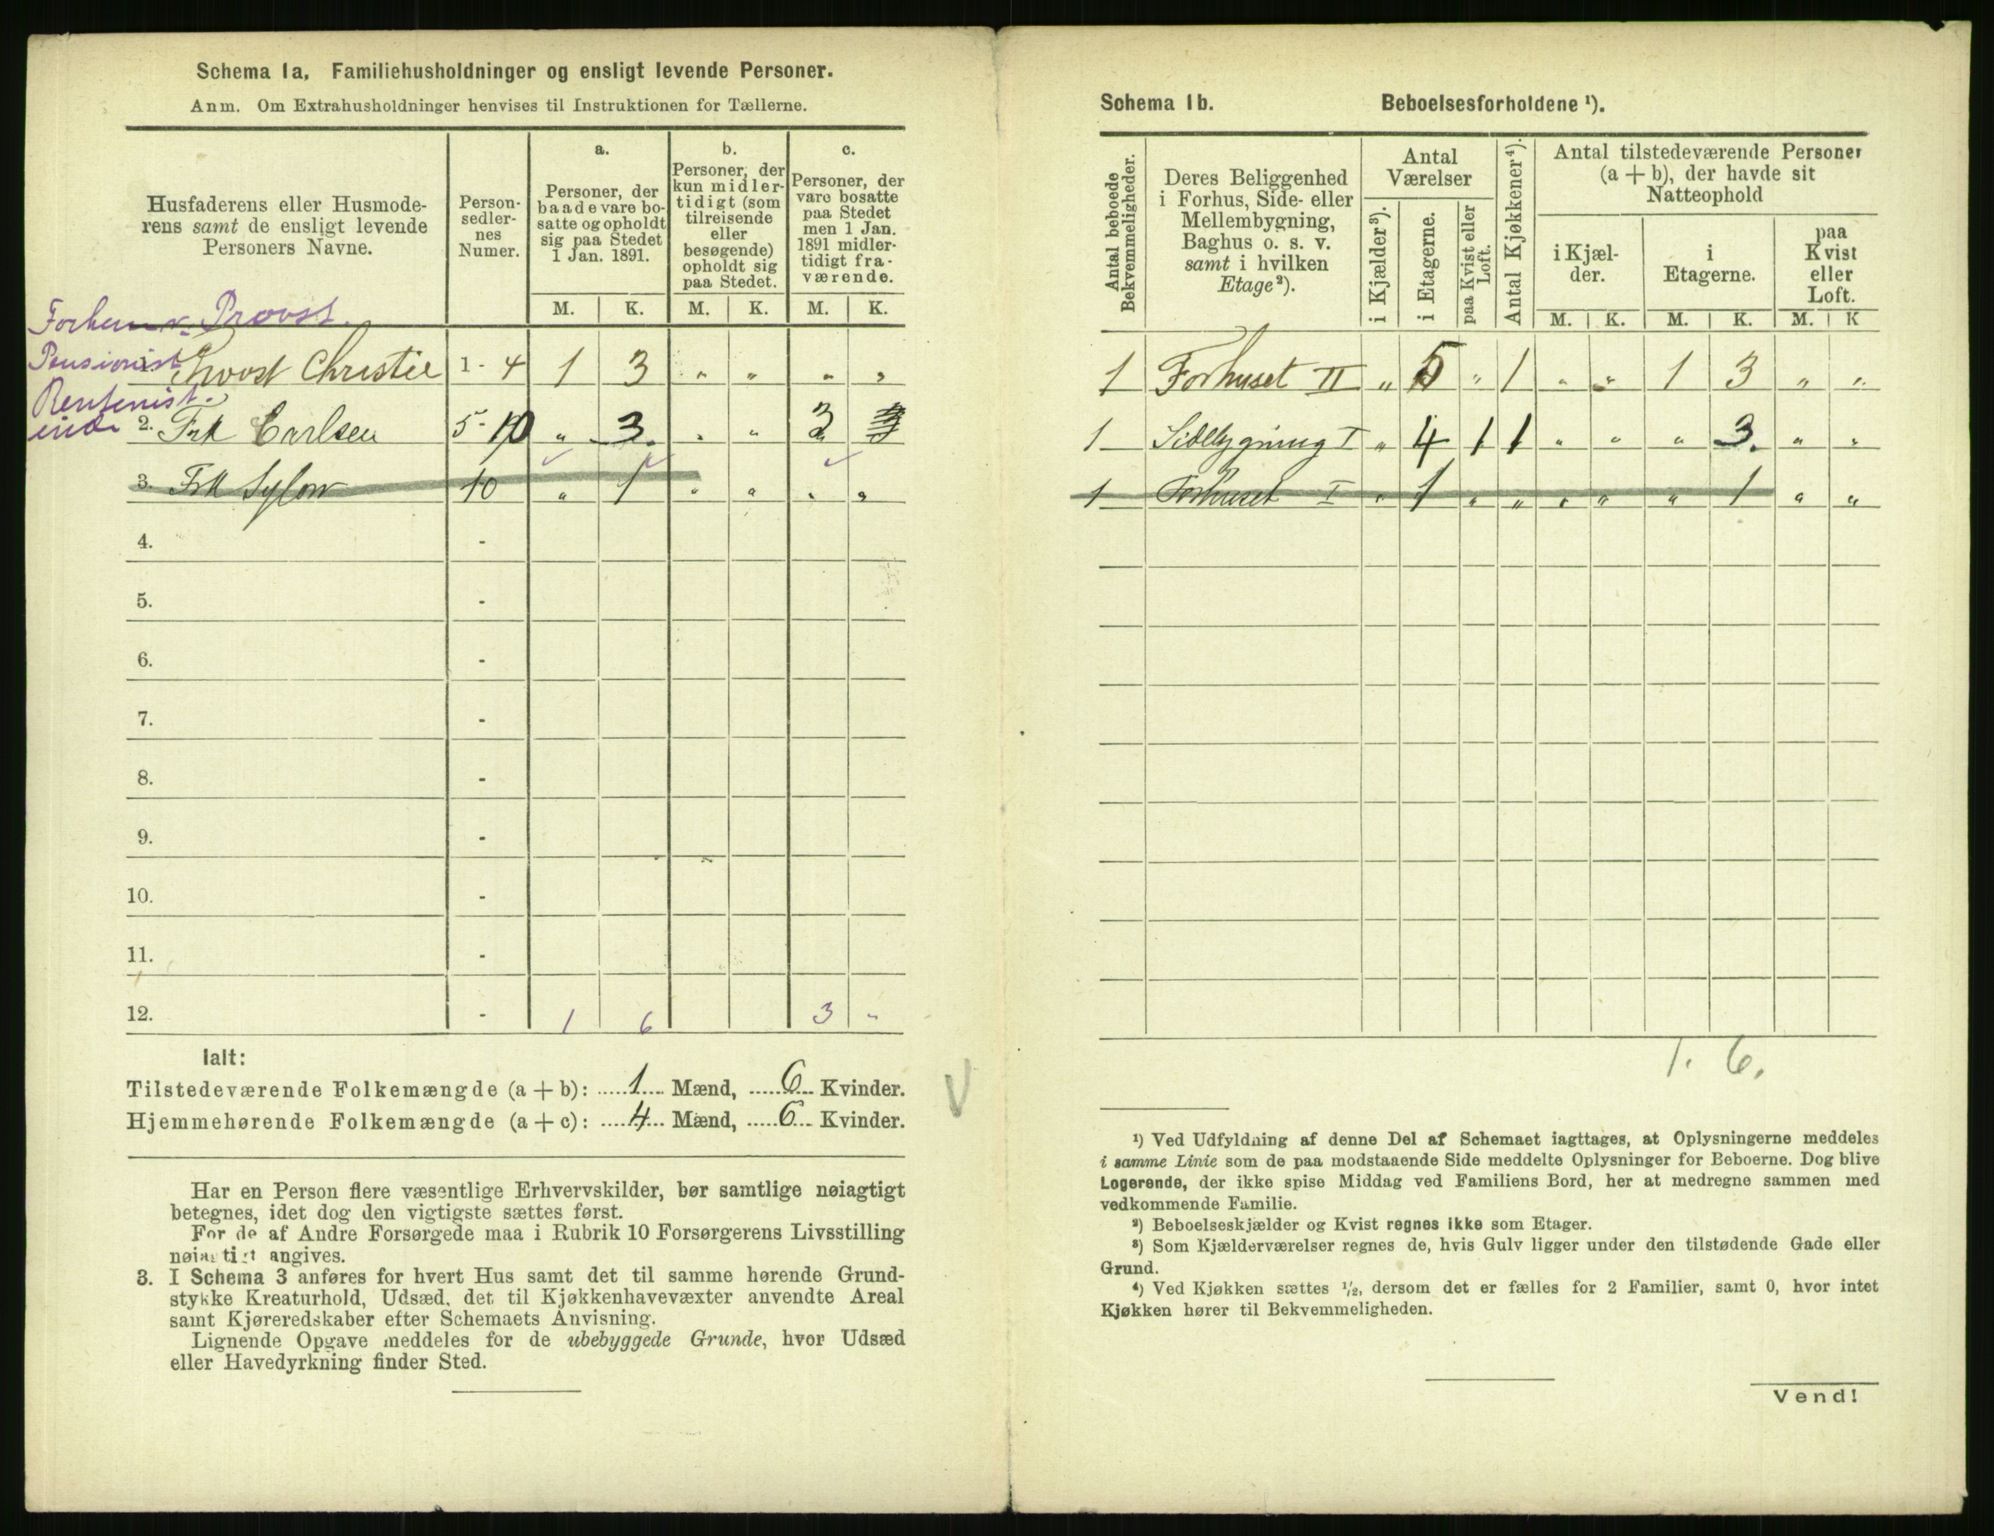 Schema 1a, Familiehusholdninger og ensligt levende Personer.
Anm. Om Extrahusholdninger henvises til Instruktionen for Tællerne.
Husfaderens eller Husmode-
rens samt de ensligt levende
Personers Navne.
Person-
sedler-
nes
Numer.
a.
Personer, der
baade vare bo-
satte og opholdt
sig paa Stedet
1 Jan. 1891.
b.
Personer, der
kun midler-
tidigt (som
tilreisende
eller
besøgende)
opholdt sig
paa Stedet.
c.
Personer, der
vare bosatte
paa Stedet
men 1 Jan.
1891 midler-
tidigt fra-
værende.
M. K. M. K. M. K.
Forhen v. Provst.
Pensionist
1. Provst Christie 1 - 4 1 3 " " " "
Rentenist.
2. Frk Carlsen 5 - 10 " 3. " " 3
3. Frk Sylow 10 " 1 " " " "
4. -
5. -
6. -
7. -
8. -
9. -
10. -
11. -
12. - 1 6 3 "
Ialt:
Tilstedeværende Folkemængde (a + b): 1 Mænd, 6 Kvinder.
Hjemmehørende Folkemængde (a + c): 4 Mænd, 6 Kvinder.
Har en Person flere væsentlige Erhvervskilder, bør samtlige nøiagtigt
betegnes, idet dog den vigtigste sættes først.
For de af Andre Forsørgede maa i Rubrik 10 Forsørgerens Livsstilling
nøiagtigt angives.
3. I Schema 3 anføres for hvert Hus samt det til samme hørende Grund-
stykke Kreaturhold, Udsæd, det til Kjøkkenhavevæxter anvendte Areal
samt Kjøreredskaber efter Schemaets Anvisning.
Lignende Opgave meddeles for de ubebyggede Grunde, hvor Udsæd
eller Havedyrkning finder Sted.
Schema 1b. Beboelsesforholdene ¹).
Antal beboede
Bekvemmeligheder.
Deres Beliggenhed
i Forhus, Side- eller
Mellembygning,
Baghus o. s. v.
samt i hvilken
Etage²).
Antal
Værelser
i Kjælder³).
i Etagerne.
paa Kvist eller
Loft.
Antal Kjøkkener⁴).
Antal tilstedeværende Personer
(a + b), der havde sit
Natteophold
i Kjæl-
der.
i
Etagerne.
paa
Kvist
eller
Loft.
M. K. M. K. M. K
1 Forhuset II " 5 " 1 " " 1 3 " "
1 Sidebygning I " 4 1 1 " " " 3. " "
1 Forhuset I " 1 " " " " " 1 " "
1. 6.
¹) Ved Udfyldning af denne Del af Schemaet iagttages, at Oplysningerne meddeles
i samme Linie som de paa modstaaende Side meddelte Oplysninger for Beboerne. Dog blive
Logerende, der ikke spise Middag ved Familiens Bord, her at medregne sammen med
vedkommende Familie.
²) Beboelseskjælder og Kvist regnes ikke som Etager.
³) Som Kjælderværelser regnes de, hvis Gulv ligger under den tilstødende Gade eller
Grund.
⁴) Ved Kjøkken sættes ½, dersom det er fælles for 2 Familier, samt 0, hvor intet
Kjøkken hører til Bekvemmeligheden.
Vend!